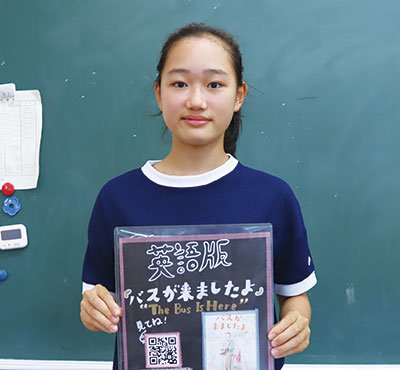 英語版
『バスが来ましたよ』
"The Bus Is Here"
見てね!
バスが
来ましたよ